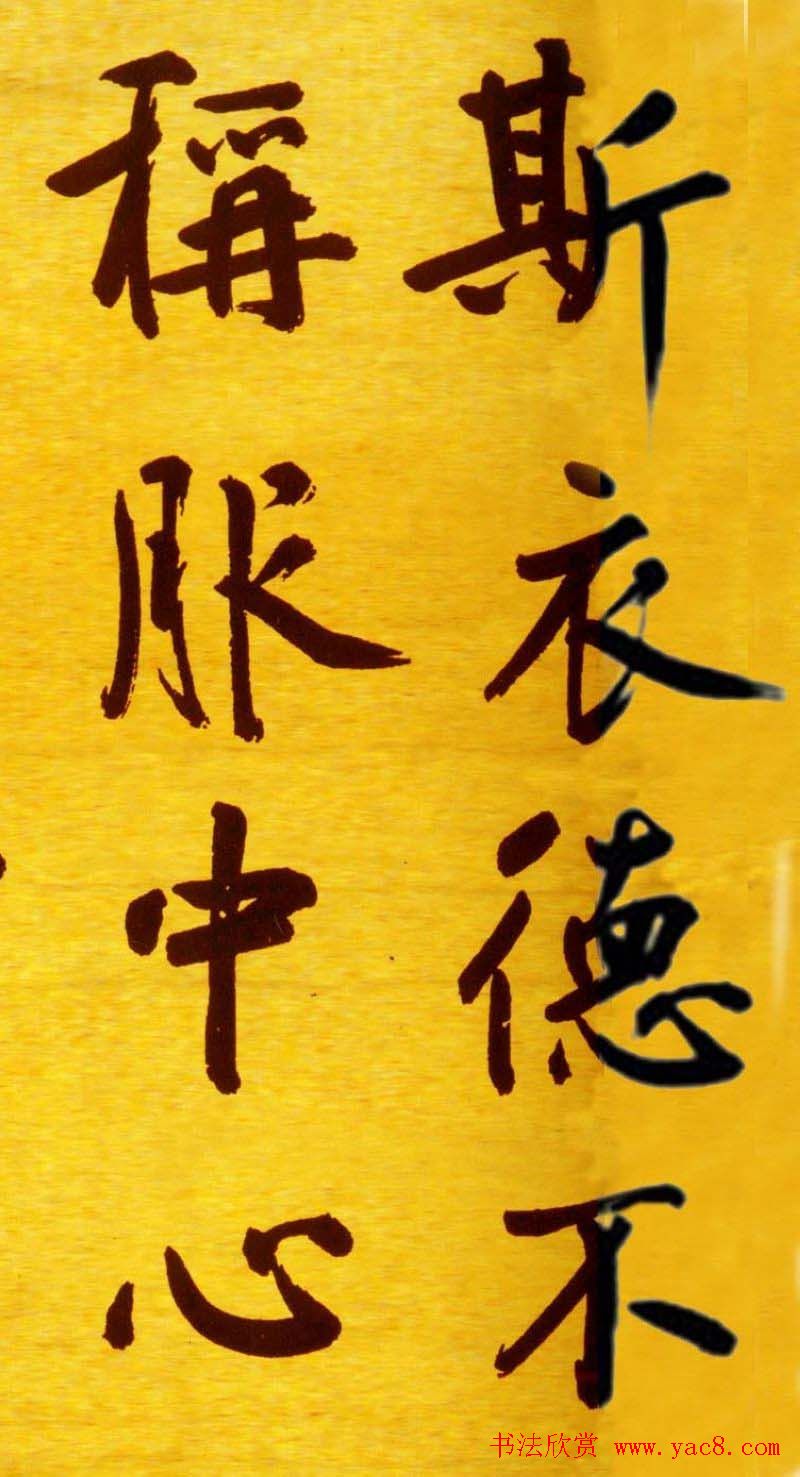 斯衣德不
稱服中心
书法欣赏 www.yac8.com